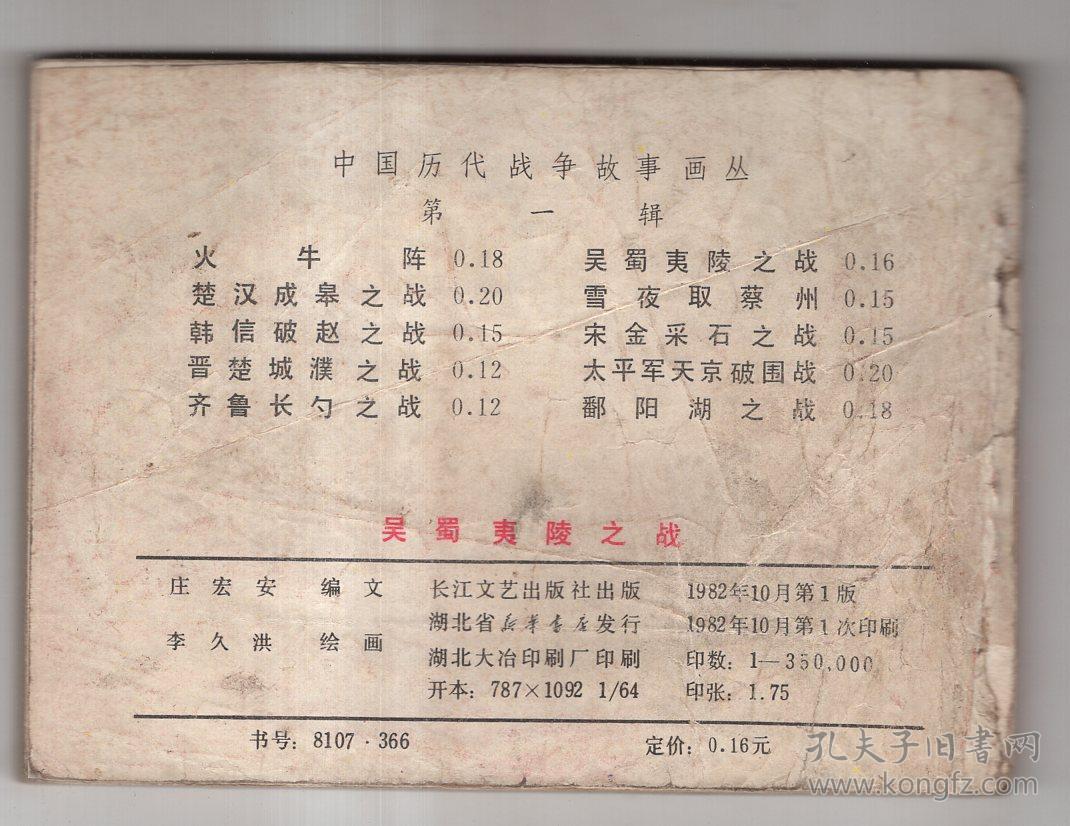 中国历代战争故事画丛
第一辑
火牛阵 0.18
楚汉成皋之战 0.20
韩信破赵之战 0.15
晋楚城濮之战 0.12
齐鲁长勺之战 0.12
吴蜀夷陵之战 0.16
雪夜取蔡州 0.15
宋金采石之战 0.15
太平军天京破围战 0.20
鄱阳湖之战 0.18
吴蜀夷陵之战
庄宏安 编文
李久洪 绘画
长江文艺出版社出版
湖北省新华书店发行
湖北大冶印刷厂印刷
开本：787×1092 1/64
1982年10月第1版
1982年10月第1次印刷
印数：1—350,000
印张：1.75
书号：8107·366
定价：0.16元
孔夫子旧书网
www.kongfz.com